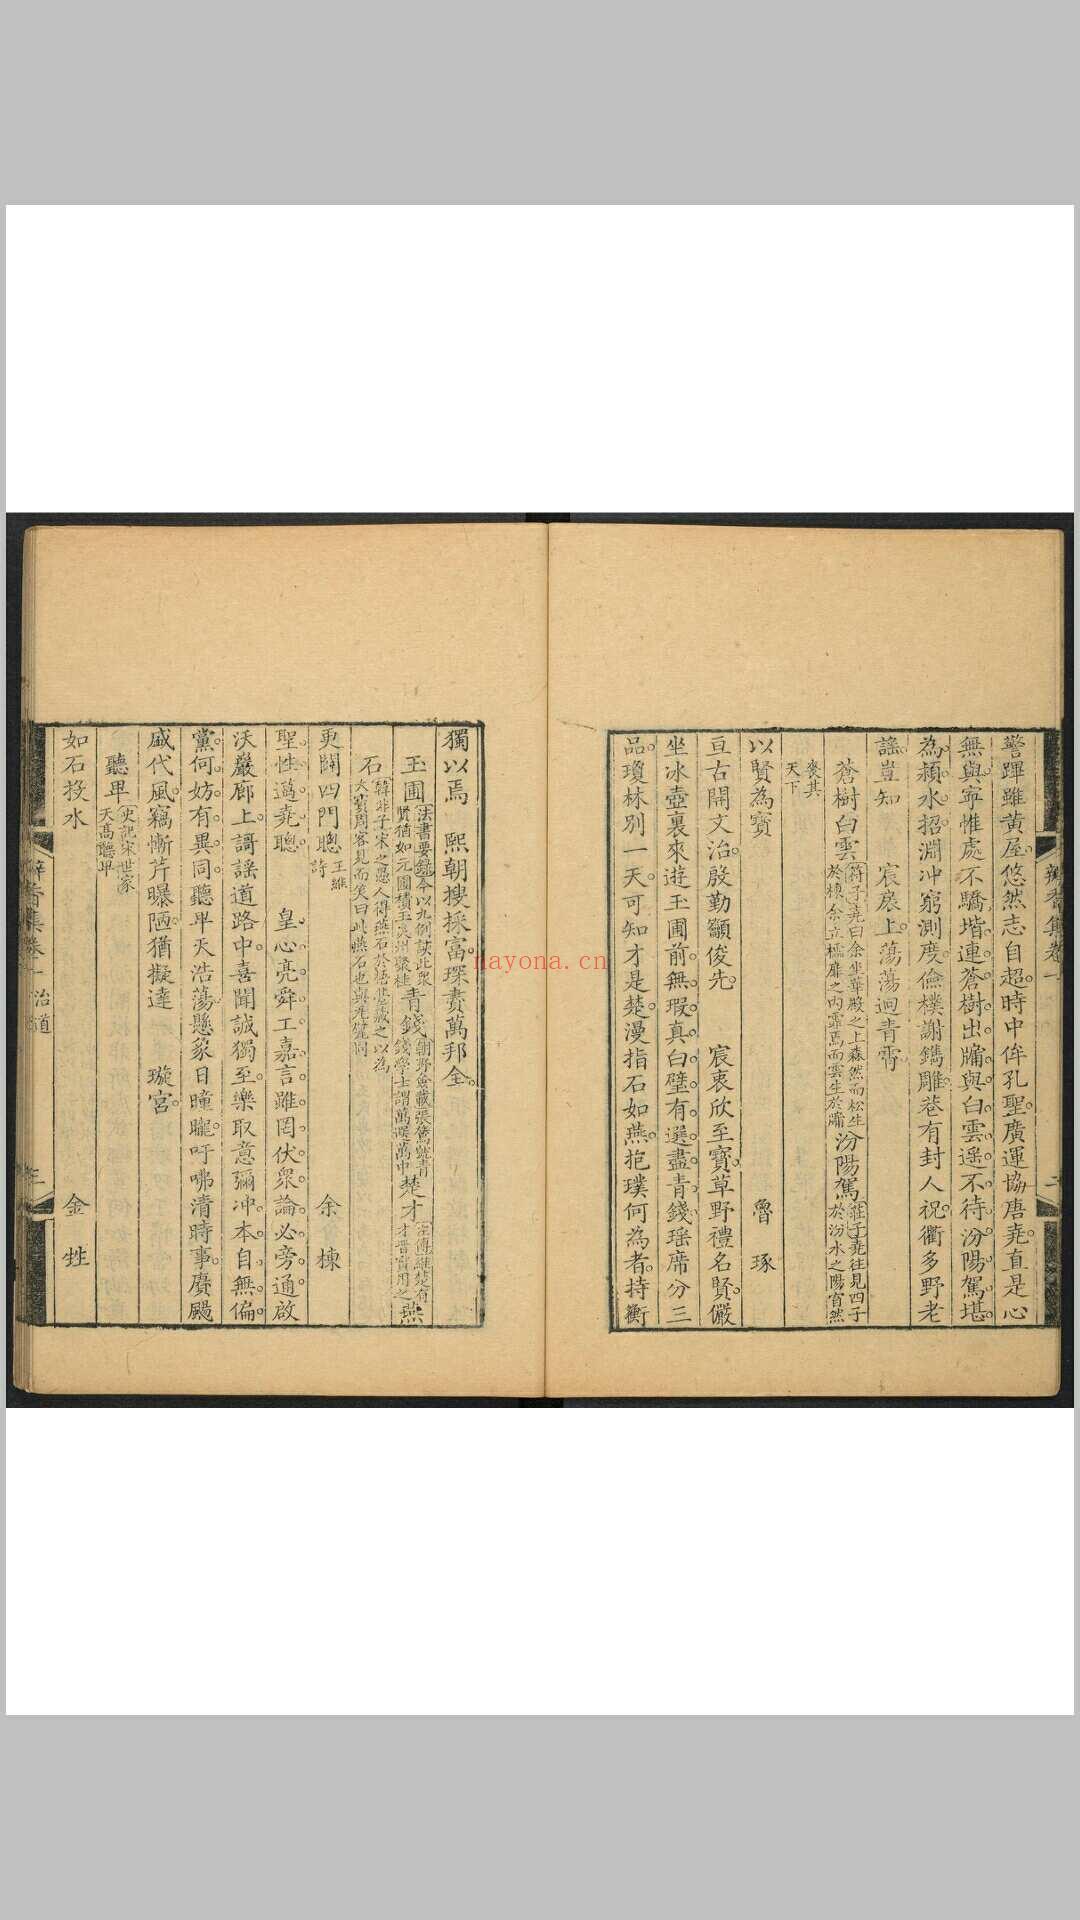 警蹕雖黃屋悠然志自超時中侔孔聖廣運協唐堯直是心
無與寧惟處不驕堦連蒼樹出牗與白雲遥不待汾陽駕堪
為潁水招淵冲窮測度儉樸謝鐫雕巷有封人祝衢多野老
謠豈知 宸扆上蕩蕩迥青霄
蒼樹白雲符子堯曰余坐華殿之上森然而松生於棟余立櫺扉之内霏焉而雲生於牖汾陽駕莊子堯往見四子於汾水之陽窅然
喪其天下
以賢為寶 魯琢
亘古開文治殷勤籲俊先 宸衷欣至寶草野禮名賢儼
坐冰壺裏來遊玉圃前無瑕真白壁有選盡青錢瑶席分三
品瓊林別一天可知才是楚漫指石如燕抱璞何為者持衡
獨以焉 熙朝搜採富琛賮萬邦全
玉圃法書要錄今以九例該此衆賢猶如元圃積玉炎州聚桂青錢朝野僉載張鷟號青錢學士謂萬選萬中楚才左傳雖楚有才晉實用之燕
石韓非子宋之愚人得燕石於梧臺藏之以為大寶周客見而笑曰此燕石也與瓦甓同
更闢四門聰王維詩 余棟
聖性邁堯聰 皇心亮舜工嘉言雖罔伏衆論必旁通啟
沃巖廊上謌謡道路中喜聞誠獨至樂取意彌冲本自無偏
黨何妨有異同聽卑天浩蕩懸象日曈曨吁咈清時事賡颺
盛代風竊慚芹曝陋猶擬達 璇宮
聽卑史記宋世家天高聽卑
如石投水 金甡
辦香集卷一
二
辦香集卷一 治道
三
nayona.cn